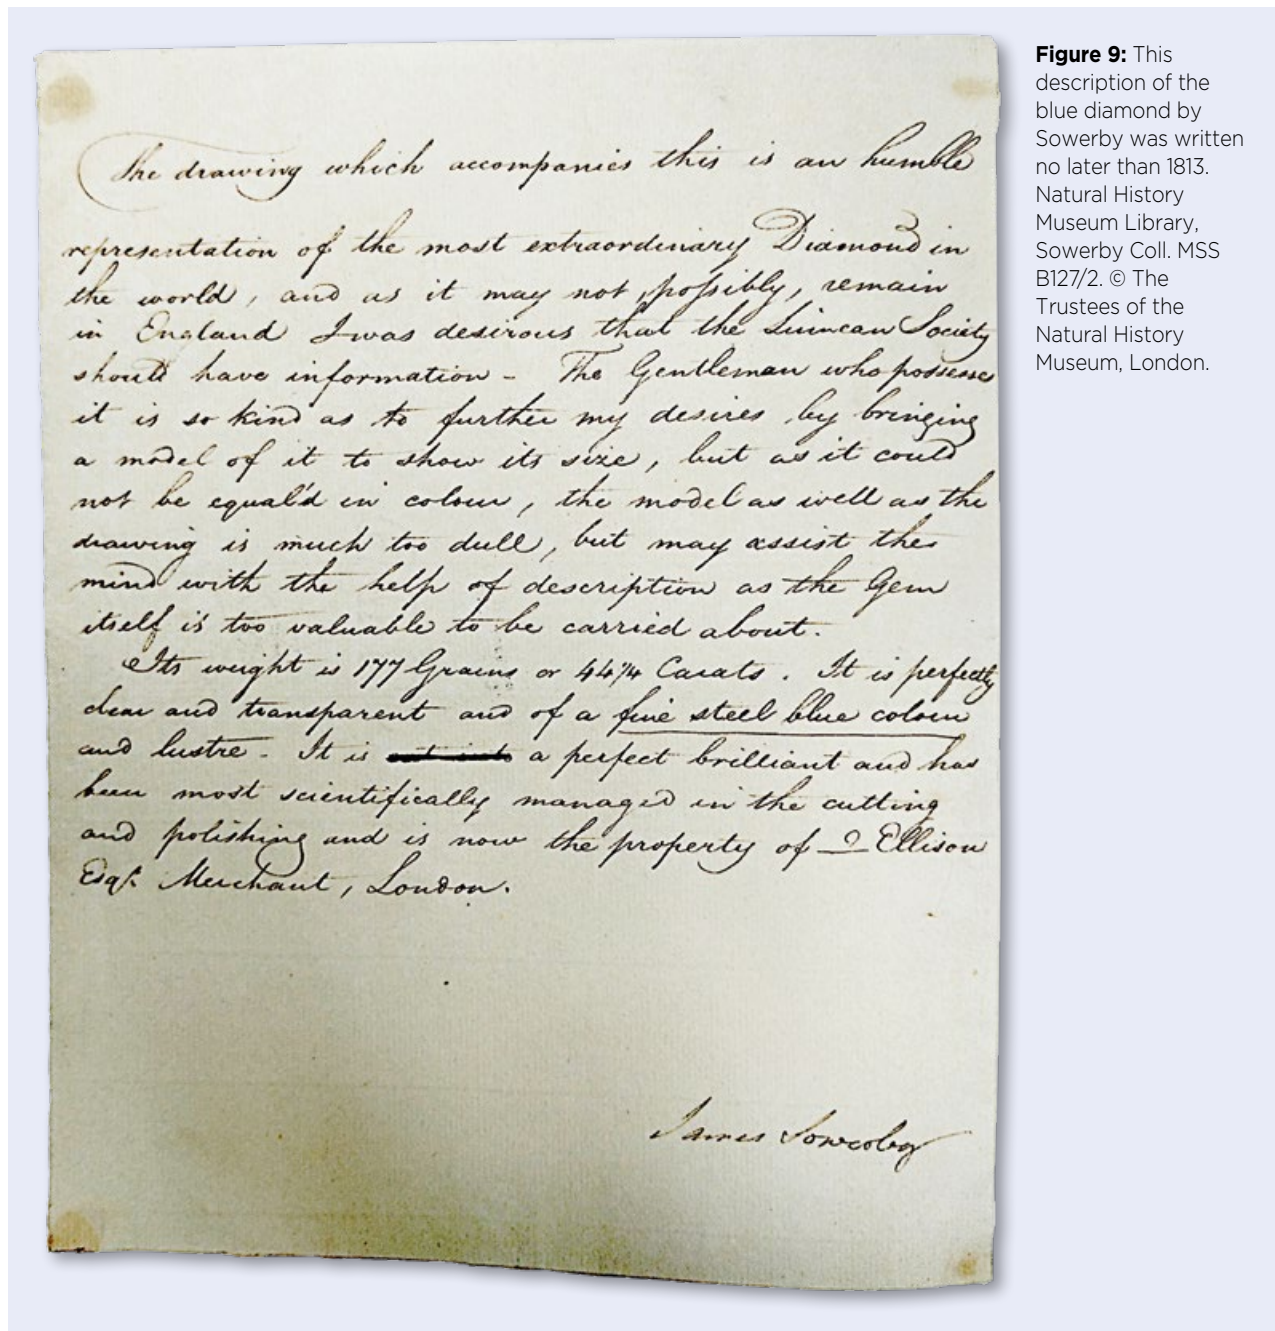 The drawing which accompanies this is an humble
representation of the most extraordinary Diamond in
the world, and as it may not, possibly, remain
in England I was desirous that the Linnean Society
should have information - The Gentleman who possesses
it is so kind as to further my desires by bringing
a model of it to show its size, but as it could
not be equal'd in colour, the model as well as the
drawing is much too dull, but may assist the
mind with the help of description as the Gem
itself is too valuable to be carried about.
Its weight is 177 Grains or 44 1/4 Carats. It is perfectly
clear and transparent and of a fine steel blue colour
and lustre - It is a perfect brilliant and has
been most scientifically managed in the cutting
and polishing and is now the property of Ellison
Esqr. Merchant, London.
James Sowerby
Figure 9: This
description of the
blue diamond by
Sowerby was written
no later than 1813.
Natural History
Museum Library,
Sowerby Coll. MSS
B127/2. © The
Trustees of the
Natural History
Museum, London.